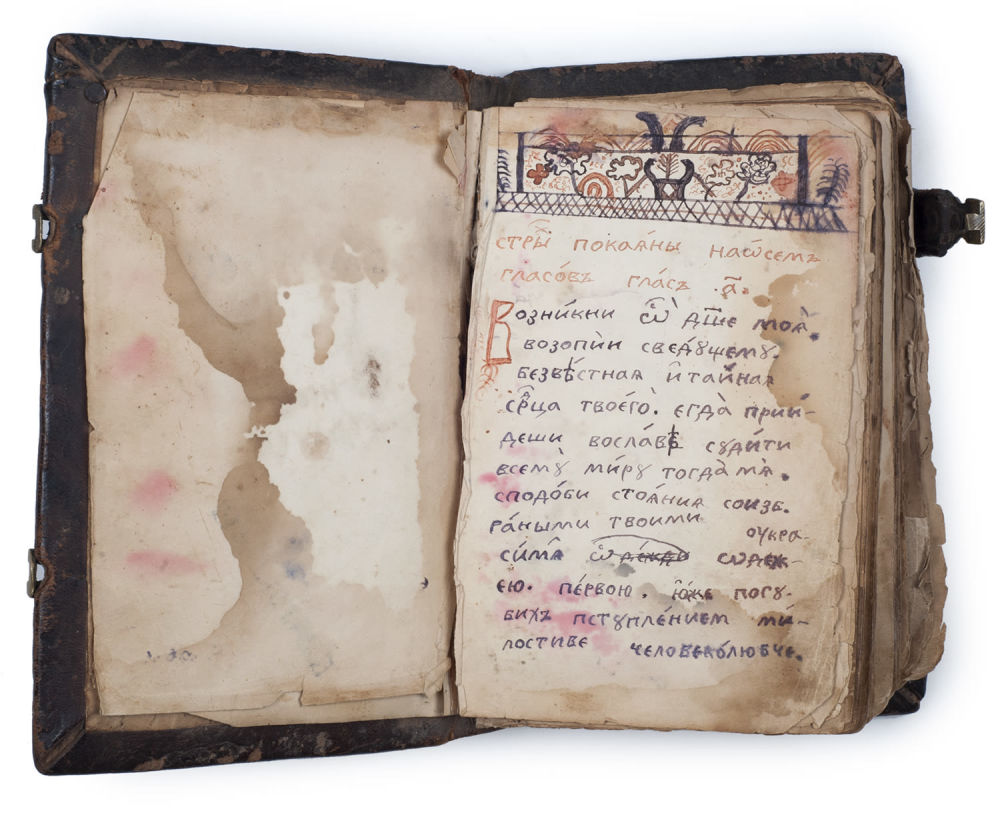 стры̑ покаѧ́ны наѡ́семъ
гласо́въ гла́съ .а҃.
Возни́кни ѽ дш҃е моѧ̀.
возопі́и сведꙋщемꙋ.
безвѣ́стнаѧ и҆та́йнаѧ
ср҃ца твоего̀. егда̀ прии́-
деши вославѣ̀ сꙋди́ти
всемꙋ̀ ми́рꙋ тогда̀ мѧ̀.
сподо́би стоѧ́ниѧ соизб.
ра́ными твоими оукра
си́мѧ
ею. пе́рвою. ю́же погꙋ-
бихъ пстꙋпле́нием ми́-
лостиве человеко́любче.